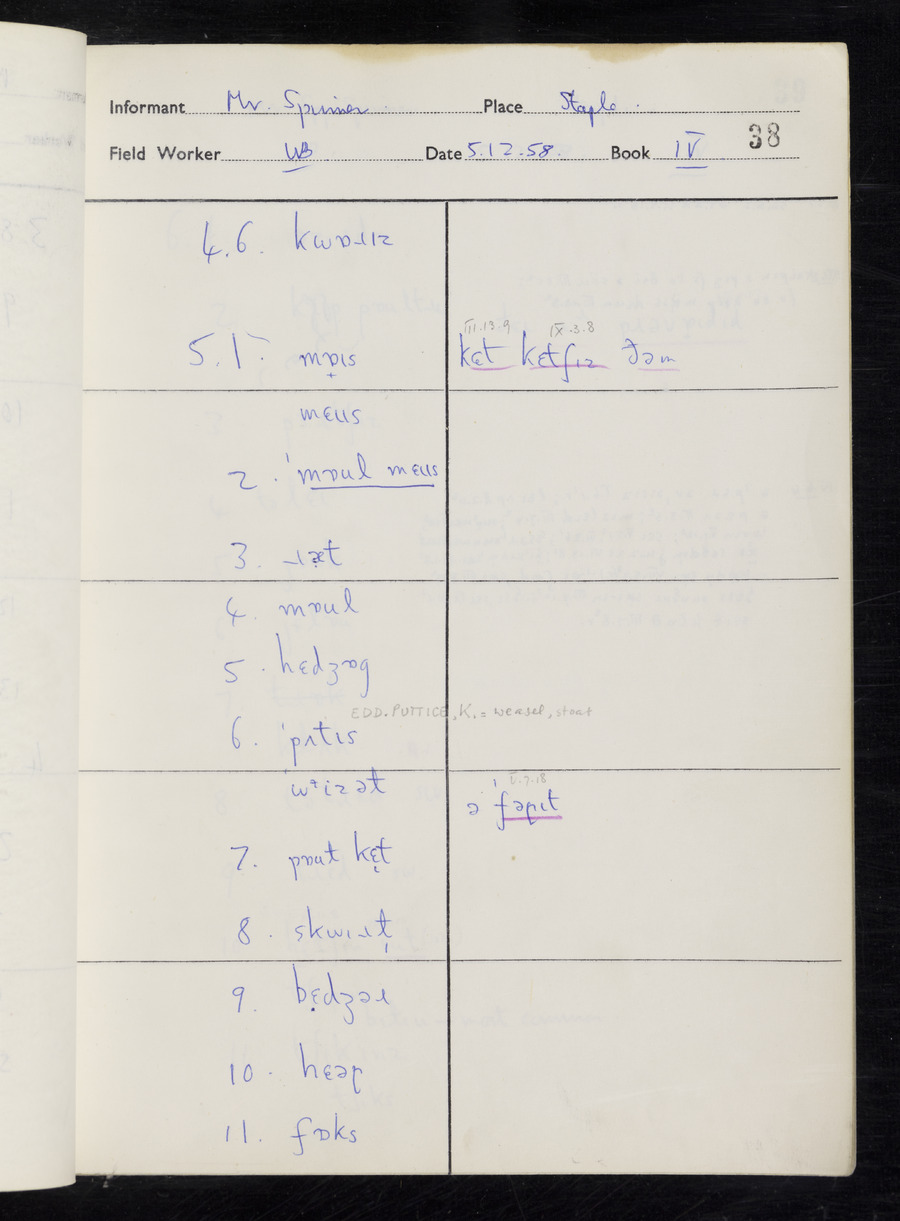 Informant Mr. Spinner Place Staple.
Field Worker WB Date 5.12.58. Book IV 38
4.6. kwɒɹɪz
III.13.9 IX.3.8
5.1 mɒɪs kɛt kɛtʃɪz ðəm
mɛʊs
2. ˈmɒʊl mɛʊs
3. ɹæt
4. mɒʊl
5. hɛdʒɒg
EDD. PUTTICE, K. = weasel, stoat
6. ˈpʌtɪs
V.7.18
ˈwᵊizət ə ˈfəpɪt
7. pɒʊt kɛt
8. skwɪɹt
9. bɛdʒəɹ
10. hɛəɽ
11. fɒks